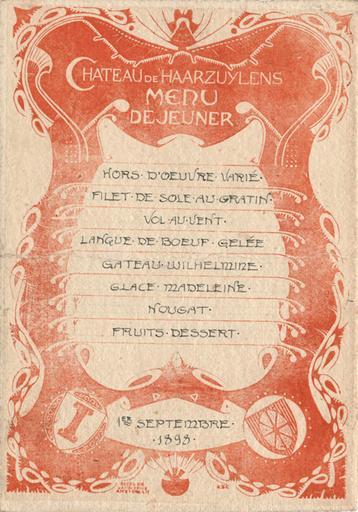 CHATEAU DE HAARZUYLENS
MENU
DEJEUNER
HORS · D'OEUVRE · VARIÉ ·
FILET · DE · SOLE · AU · GRATIN ·
VOL · AU · VENT ·
LANGUE · DE · BOEUF · GELÉE
GATEAU · WILHELMINE ·
GLACE · MADELEINE ·
NOUGAT ·
FRUITS · DESSERT ·
1ER SEPTEMBRE ·
· 1898 ·